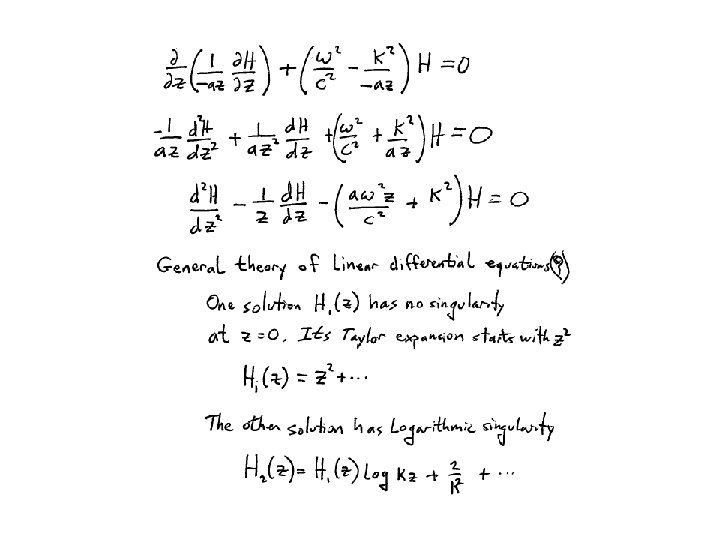 ∂/∂z (1/−az ∂H/∂z) + (ω²/c² − K²/−az) H = 0
−1/az d²H/dz² + 1/az² dH/dz + (ω²/c² + K²/az) H = 0
d²H/dz² − 1/z dH/dz − (aω²z/c² + K²) H = 0
General theory of linear differential equations
One solution H₁(z) has no singularity
at z = 0. Its Taylor expansion starts with z²
H₁(z) = z² + ···
The other solution has Logarithmic singularity
H₂(z) = H₁(z) log Kz + 2/K² + ···